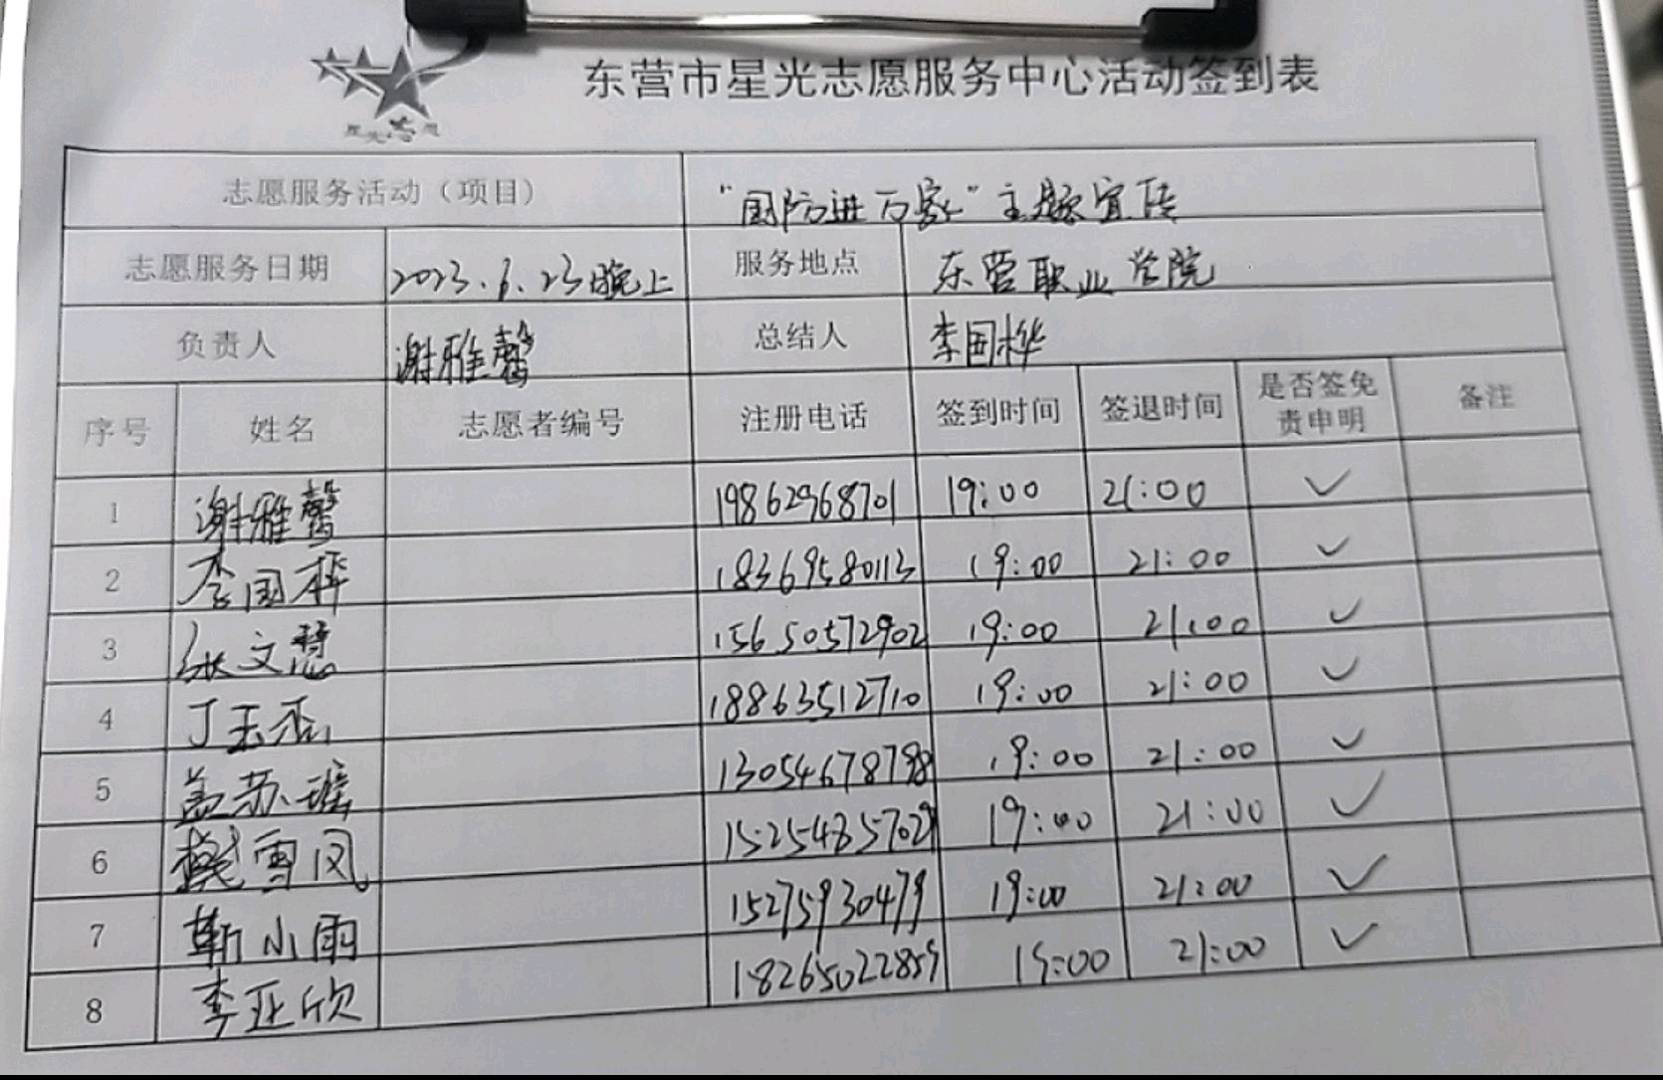 东营市星光志愿服务中心活动签到表
志愿服务活动（项目） “国防进万家”主题宣传
志愿服务日期 2023.6.23晚上 服务地点 东营职业学院
负责人 谢雅馨 总结人 李国桦
序号 姓名 志愿者编号 注册电话 签到时间 签退时间 是否签免责申明 备注
1 谢雅馨 19862968701 19:00 21:00 ✓
2 李国桦 18369580113 19:00 21:00 ✓
3 张文慧 15650572902 19:00 21:00 ✓
4 丁玉杰 18863512710 19:00 21:00 ✓
5 孟苏瑶 19:00 21:00 ✓
6 雪凤 19:00 21:00 ✓
7 靳小雨 15275930479 19:00 21:00 ✓
8 李亚欣 18265022859 19:00 21:00 ✓